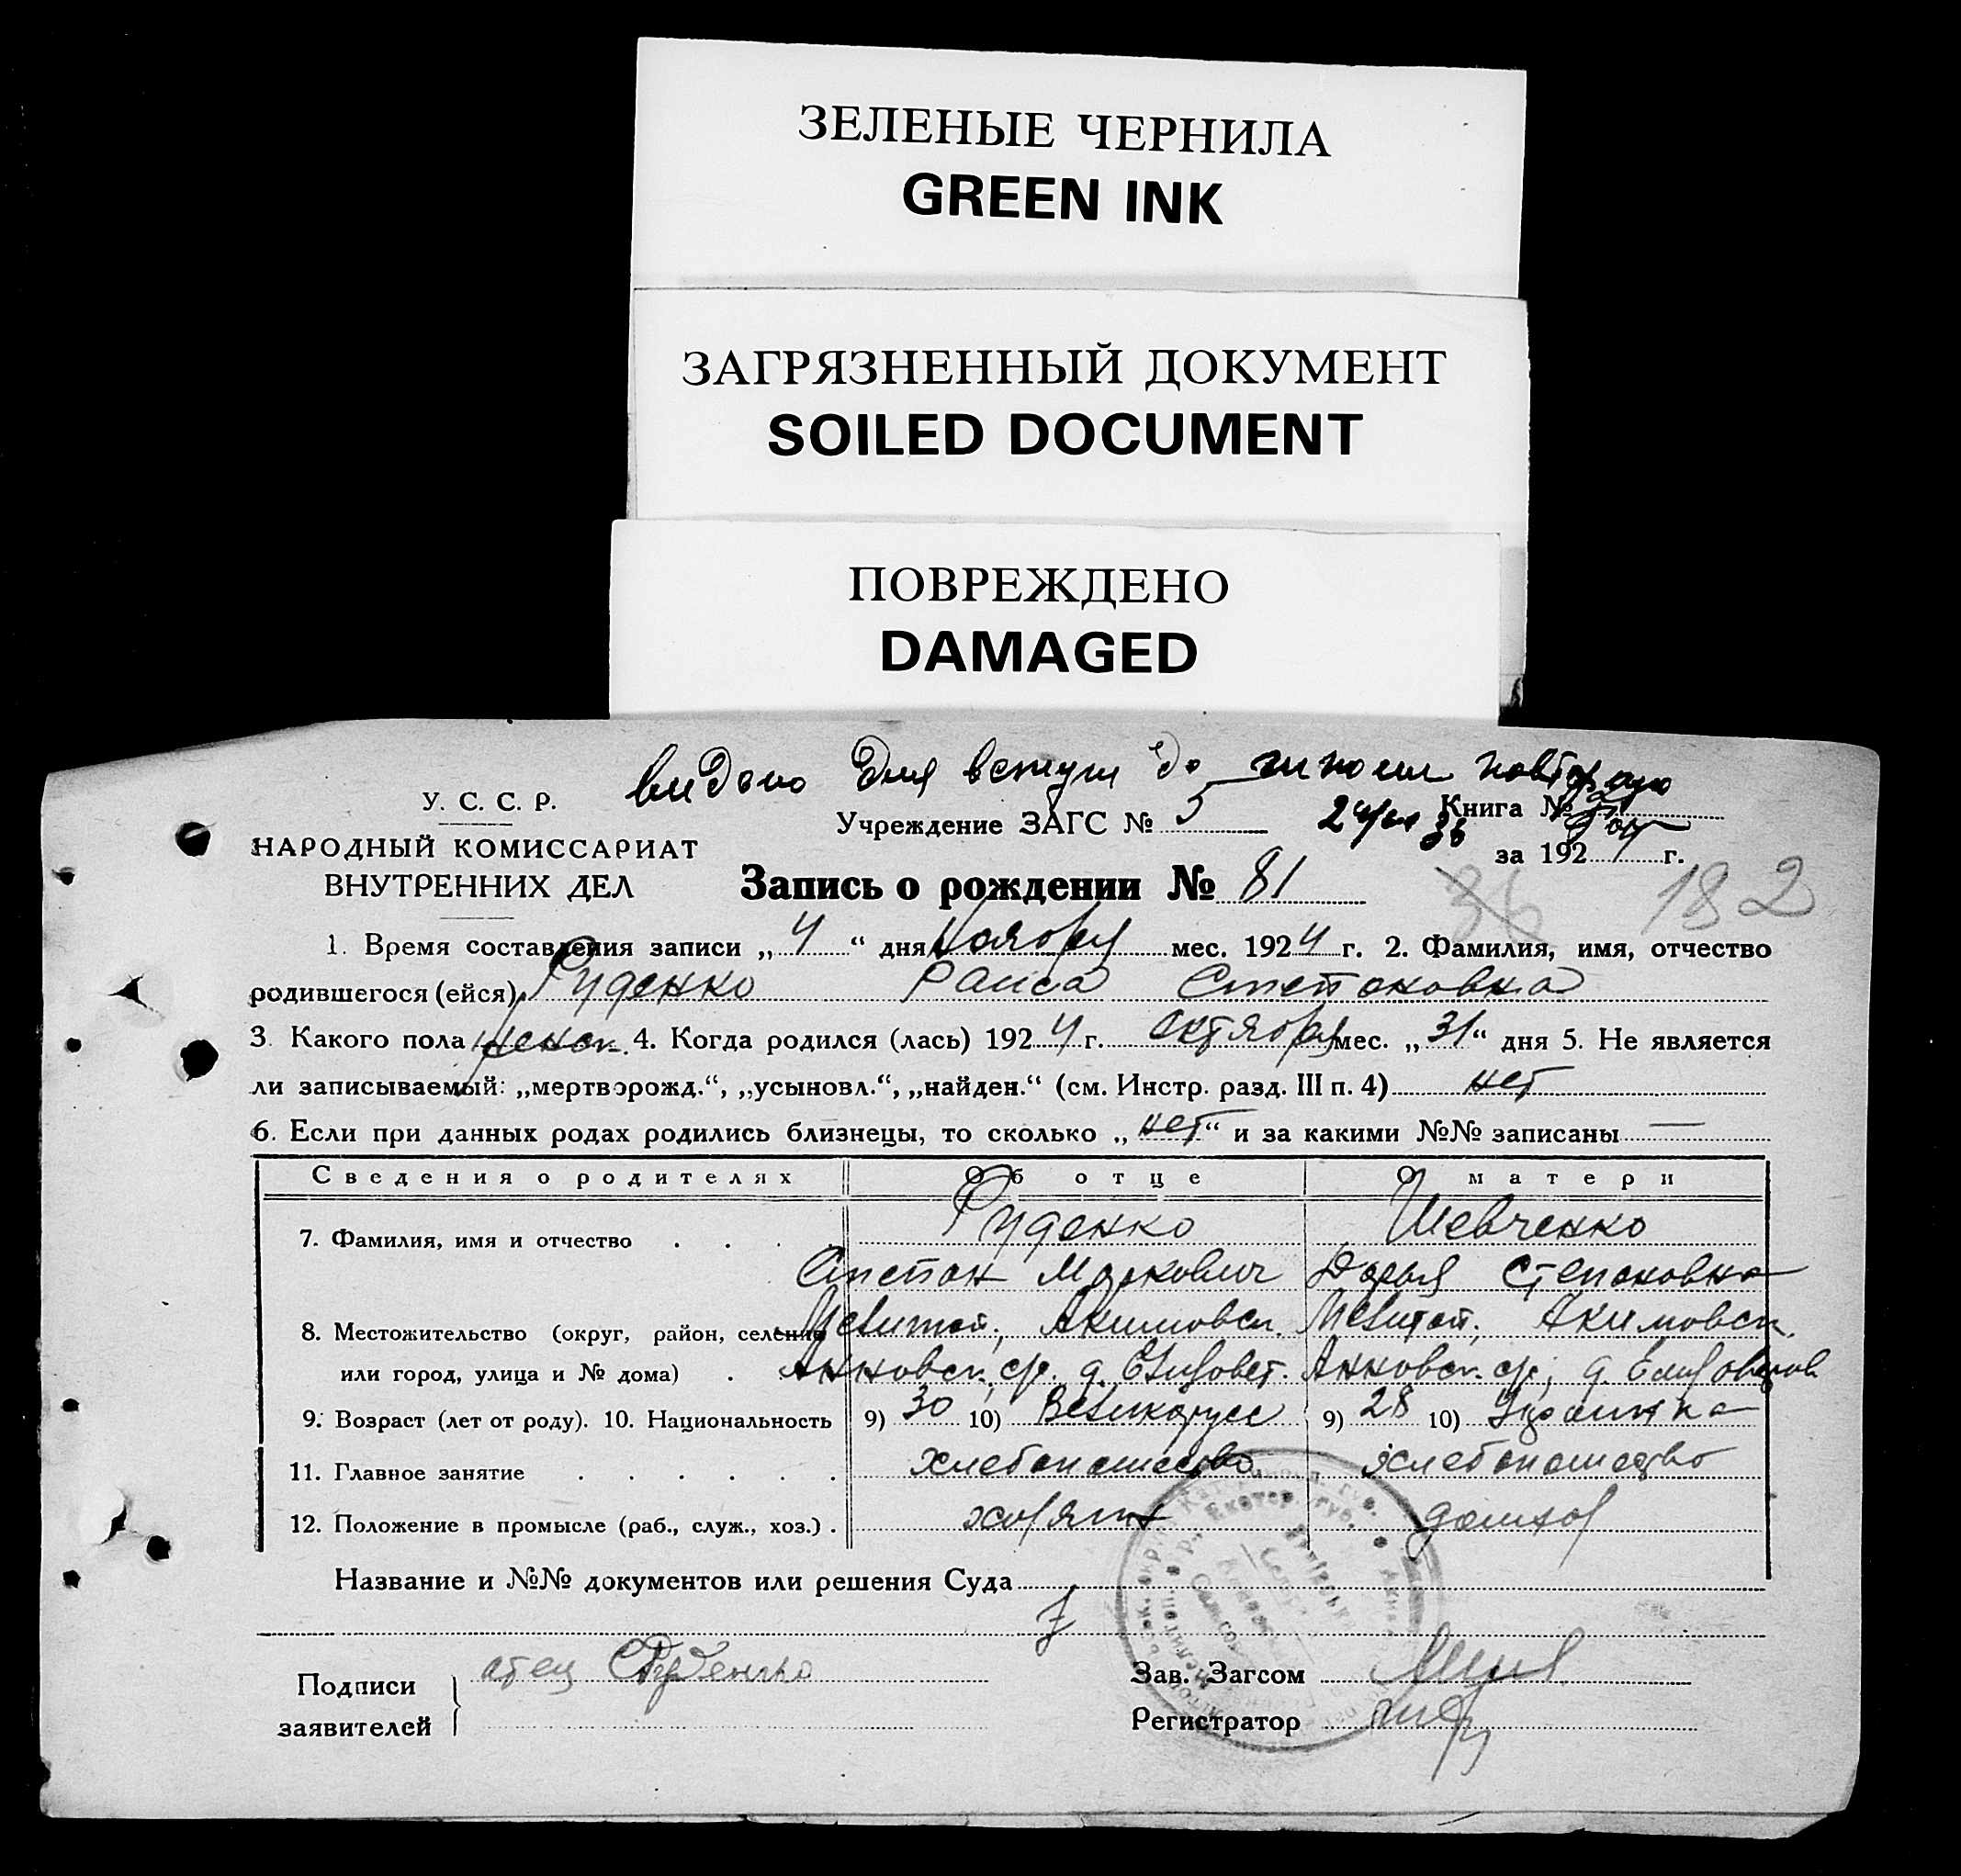 ЗЕЛЕНЫЕ ЧЕРНИЛА
GREEN INK
ЗАГРЯЗНЕННЫЙ ДОКУМЕНТ
SOILED DOCUMENT
ПОВРЕЖДЕНО
DAMAGED
видано для вступу до школи
У. С. С. Р.
НАРОДНЫЙ КОМИССАРИАТ
ВНУТРЕННИХ ДЕЛ
Учреждение ЗАГС № 5
Книга №
за 1924 г.
Запись о рождении № 81
36 182
1. Время составления записи „4“ дня Ноября мес. 1924 г. 2. Фамилия, имя, отчество
родившегося (ейся) Руденко Раиса Степановна
3. Какого пола женск. 4. Когда родился (лась) 1924 г. Октября мес. „31“ дня 5. Не является
ли записываемый: „мертворожд.“, „усыновл.“, „найден.“ (см. Инстр. разд. III п. 4) нет
6. Если при данных родах родились близнецы, то сколько „нет“ и за какими №№ записаны —
Сведения о родителях Об отце О матери
7. Фамилия, имя и отчество Руденко Шевченко
Степан Маркович Дарья Степановна
8. Местожительство (округ, район, селение Мелитоп., Акимовск. Мелитоп., Акимовск.
или город, улица и № дома) Анновск. с/с. д. Елизовет. Анновск. с/с, д Елизоветов
9. Возраст (лет от роду). 10. Национальность 9) 30 10) Великорусс 9) 28 10) Украинка
11. Главное занятие хлебопашество хлебопашество
12. Положение в промысле (раб., служ., хоз.) . хозяин домхоз
Название и №№ документов или решения Суда
Подписи
заявителей
отец СРуденко
Зав. Загсом
Регистратор